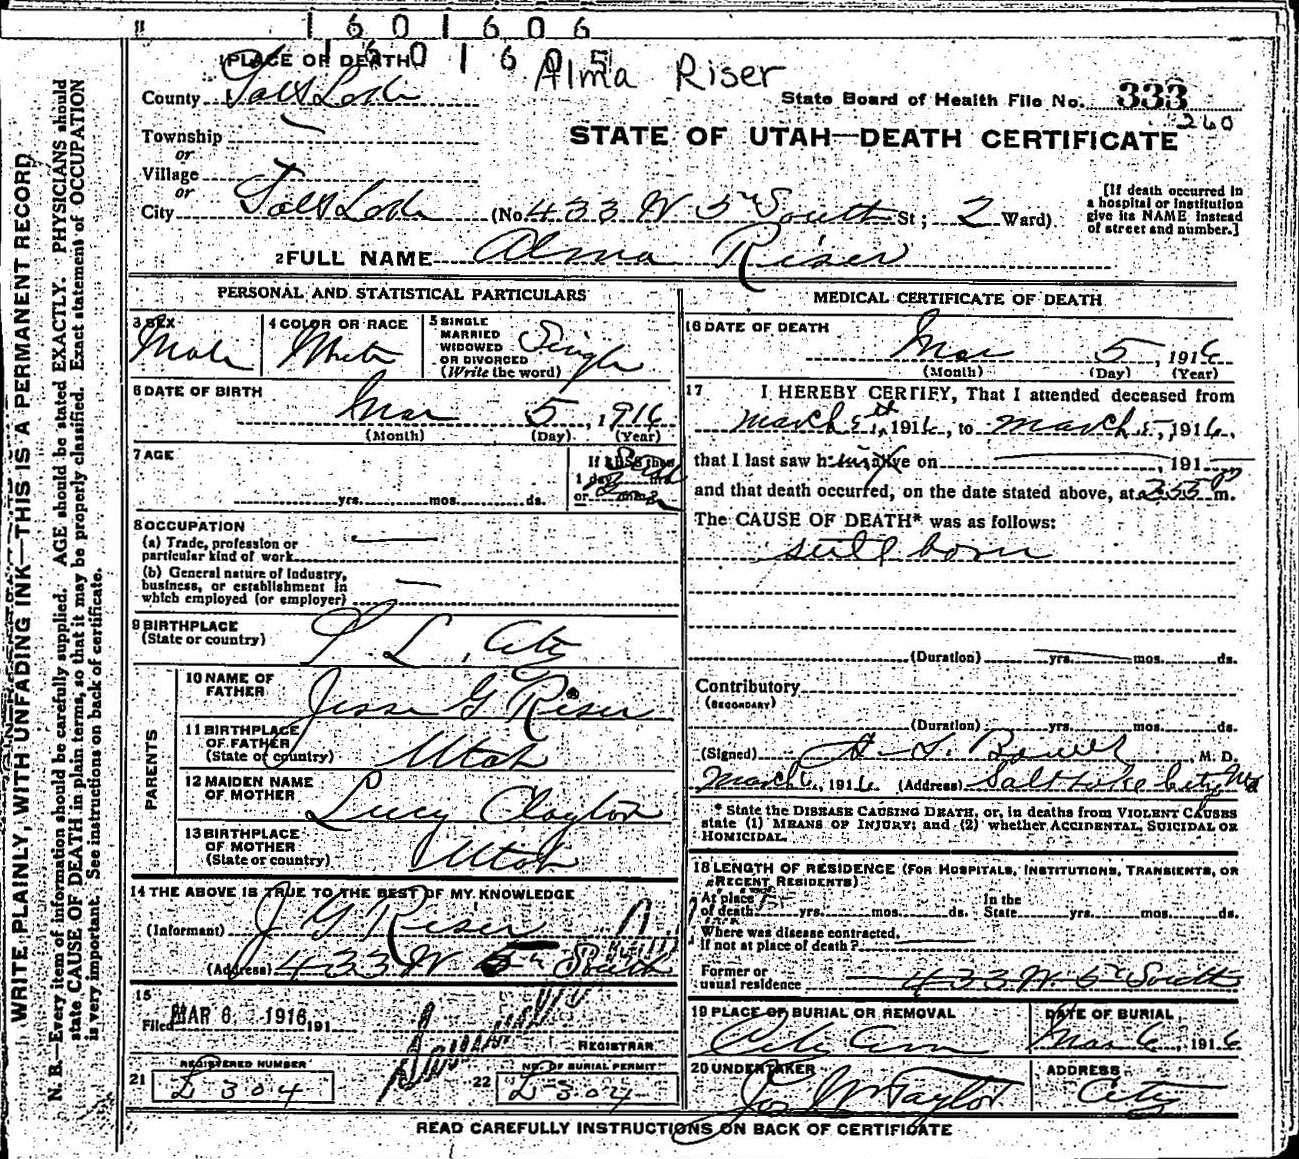 11
1601606
1601605
PLACE OF DEATH
Alma Riser
County Salt Lake
State Board of Health File No. 333
260
Township
or
STATE OF UTAH—DEATH CERTIFICATE
Village
or
City Salt Lake (No. 433 W 5th South St; 2 Ward)
[If death occurred in
a hospital or institution
give its NAME instead
of street and number.]
2 FULL NAME Alma Riser
PERSONAL AND STATISTICAL PARTICULARS
3 SEX
Male
4 COLOR OR RACE
White
5 SINGLE
MARRIED
WIDOWED
OR DIVORCED
(Write the word)
Single
6 DATE OF BIRTH
Mar 5, 1916
(Month) (Day) (Year)
7 AGE
If LESS than
1 day
or
yrs. mos. ds.
8 OCCUPATION
(a) Trade, profession or
particular kind of work
(b) General nature of Industry,
business, or establishment in
which employed (or employer)
9 BIRTHPLACE
(State or country)
S. L. City
PARENTS
10 NAME OF
FATHER
Jesse G Riser
11 BIRTHPLACE
OF FATHER
(State or country)
Utah
12 MAIDEN NAME
OF MOTHER
Lucy Clayton
13 BIRTHPLACE
OF MOTHER
(State or country)
Utah
14 THE ABOVE IS TRUE TO THE BEST OF MY KNOWLEDGE
(Informant) J G Riser
(Address) 433 W 5th South
15
Filed MAR 6 1916 191
REGISTRAR
21
REGISTERED NUMBER
L 304
22
NO. OF BURIAL PERMIT
L 304
MEDICAL CERTIFICATE OF DEATH
16 DATE OF DEATH
Mar 5, 1916
(Month) (Day) (Year)
17 I HEREBY CERTIFY, That I attended deceased from
March 5th, 1916, to March 5, 1916,
that I last saw h alive on , 191
and that death occurred, on the date stated above, at 2:55 P m.
The CAUSE OF DEATH* was as follows:
still born
(Duration) yrs. mos. ds.
Contributory
(SECONDARY)
(Duration) yrs. mos. ds.
(Signed) M. D.
March 6, 1916 (Address) Salt Lake City Utd
* State the DISEASE CAUSING DEATH, or, in deaths from VIOLENT CAUSES
state (1) MEANS OF INJURY; and (2) whether ACCIDENTAL, SUICIDAL OR
HOMICIDAL.
18 LENGTH OF RESIDENCE (FOR HOSPITALS, INSTITUTIONS, TRANSIENTS, OR
RECENT RESIDENTS)
At place
of death yrs. mos. ds.
In the
State yrs. mos. ds.
Where was disease contracted,
If not at place of death?
Former or
usual residence 433 W. 5th South
19 PLACE OF BURIAL OR REMOVAL
City Cem
DATE OF BURIAL
Mar 6, 1916
20 UNDERTAKER
Jos Wm Taylor
ADDRESS
City
READ CAREFULLY INSTRUCTIONS ON BACK OF CERTIFICATE
WRITE PLAINLY, WITH UNFADING INK—THIS IS A PERMANENT RECORD
N. B.—Every item of information should be carefully supplied. AGE should be stated EXACTLY. PHYSICIANS should
state CAUSE OF DEATH in plain terms, so that it may be properly classified. Exact statement of OCCUPATION
is very important. See instructions on back of certificate.